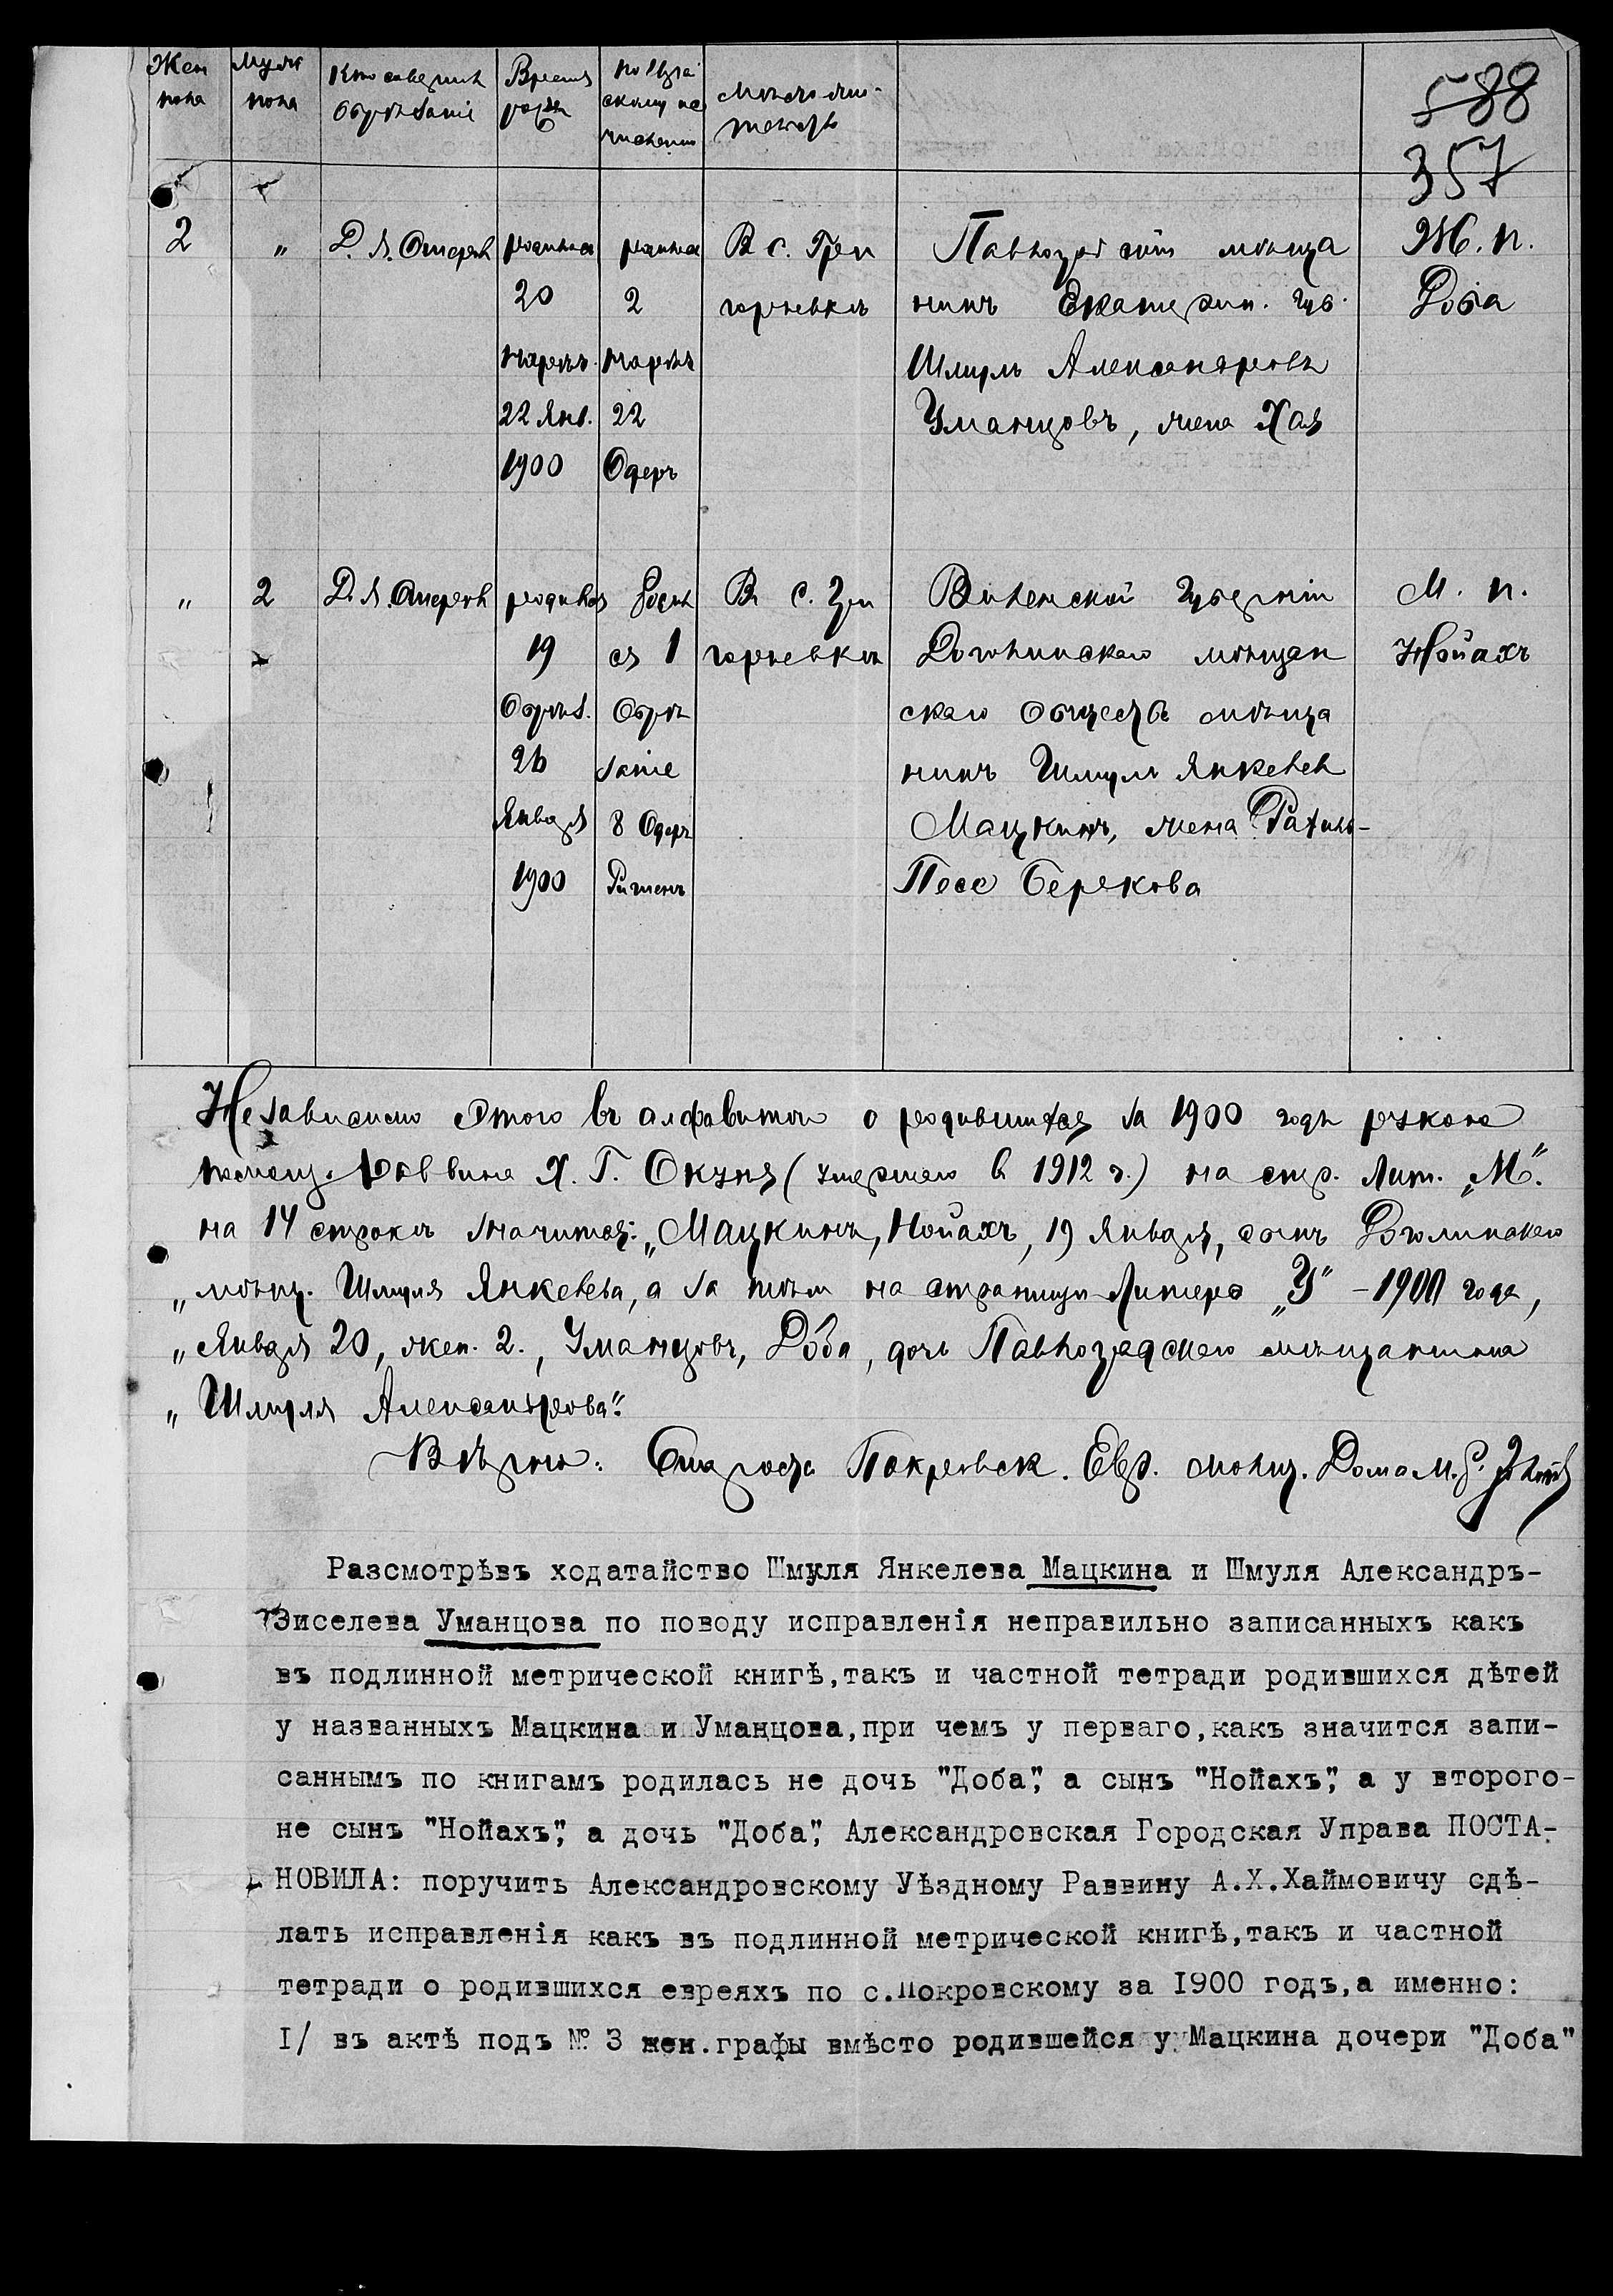 588
357
Жен пола
Муж пола
Кто совершил обрѣзаніе
Время рожд
по Евр скому ис числению
Мѣсто жи- тельст
2 " Д. Я. родилась родилась В с. Гри Павлоградскій мѣща Ж. п.
20 2 горьевкѣ нинъ Екатерин. губ. Доба
нареч. нареч Шмуль Александровъ
22 Янв. 22 Уманцовъ, жена Хая
1900 Одеръ
" 2 Д. Я. родился Родил В с. Гри Виленской губерніи М. п.
19 ся 1 горьевкѣ мѣщан Нойахъ
Обрѣз. Обрѣ скаго Общества мѣща
26 заніе нинъ Шмуль Янкелев
Января 8 Одеръ Мацкинъ, жена
1900 Песе Беркова
Независимо этого въ алфавитѣ о родившихся за 1900 годъ рукою
помощ. Раввина Х. Г. Окуня (умершего в 1912 г.) на стр. Лит. „М".
на 14 строкѣ значится: „Мацкинъ, Нойахъ, 19 Января, сынъ
„мѣщ. Шмуля Янкелева, а за тѣм на страницѣ Литера „У" – 1900 года,
„Января 20, жен. 2., Уманцовъ, Доба, дочь Павлоградскаго мѣщанина
„Шмуля Александрова".
Вѣрно: Староста Покровск. Евр. молит. Дома М.
Разсмотрѣвъ ходатайство Шмуля Янкелева Мацкина и Шмуля Александръ-
Зиселева Уманцова по поводу исправленія неправильно записанныхъ какъ
въ подлинной метрической книгѣ,такъ и частной тетради родившихся дѣтей
у названныхъ Мацкина и Уманцова,при чемъ у перваго,какъ значится запи-
саннымъ по книгамъ родилась не дочь "Доба", а сынъ "Нойахъ", а у второго-
не сынъ "Нойахъ", а дочь "Доба", Александровская Городская Управа ПОСТА-
НОВИЛА: поручить Александровскому Уѣздному Раввину А.Х.Хаймовичу сдѣ-
лать исправленія какъ въ подлинной метрической книгѣ,такъ и частной
тетради о родившихся евреяхъ по с.Покровскому за 1900 годъ,а именно:
I/ въ актѣ подъ № 3 жен.графы вмѣсто родившейся у Мацкина дочери "Доба"